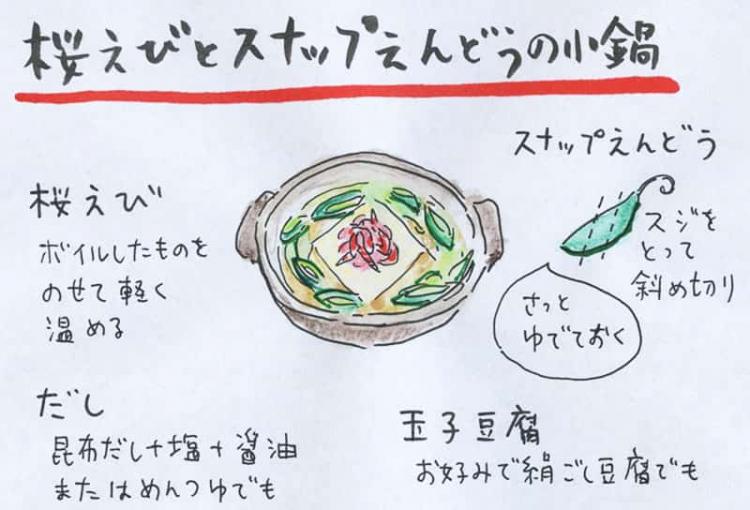 桜えびとスナップえんどうの小鍋
スナップえんどう
スジを
とって
斜め切り
さっと
ゆでておく
桜えび
ボイルしたものを
のせて軽く
温める
だし
昆布だし+塩+醤油
またはめんつゆでも
玉子豆腐
お好みで絹ごし豆腐でも